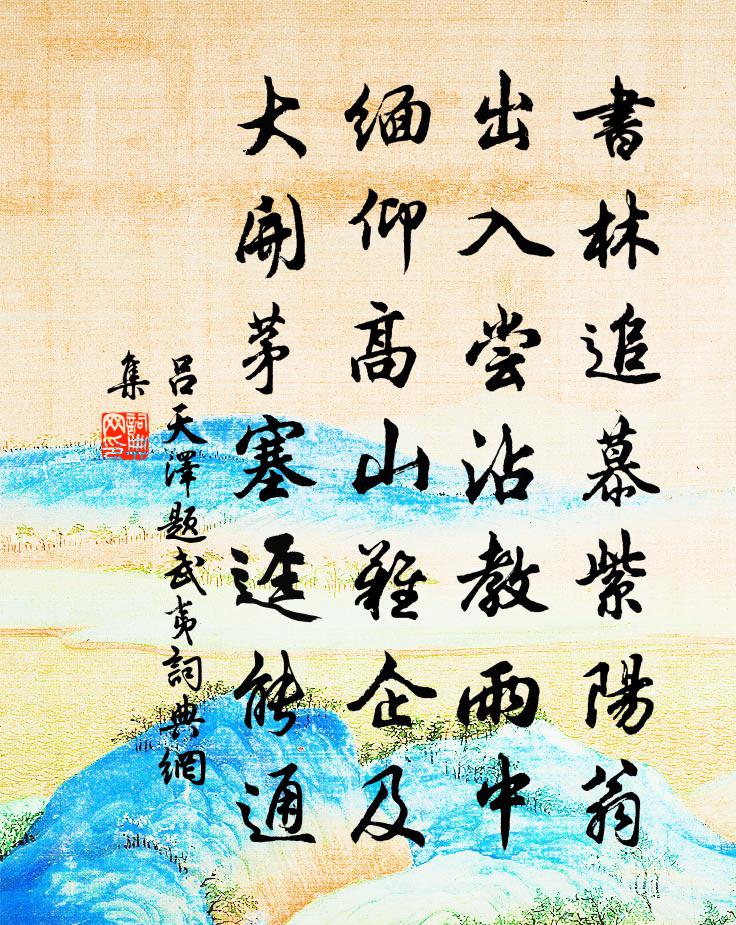 書林追慕紫陽翁
出入嘗沾教雨中
緬仰高山難企及
大開茅塞逕能通
呂天澤題武夷詞典網
集
詞典网印